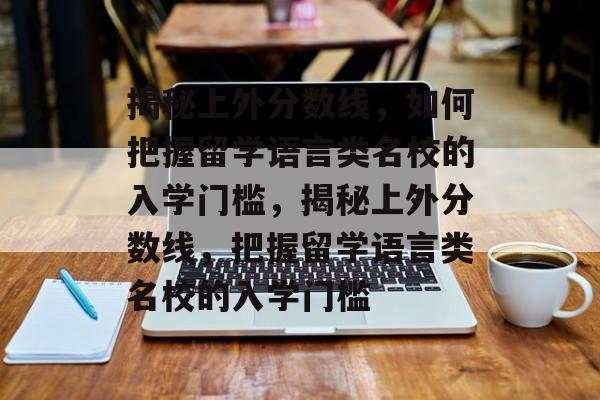 揭秘上外分数线，如何
把握留学语言类名校的
入学门槛，揭秘上外分
数线，把握留学语言类
名校的入学门槛